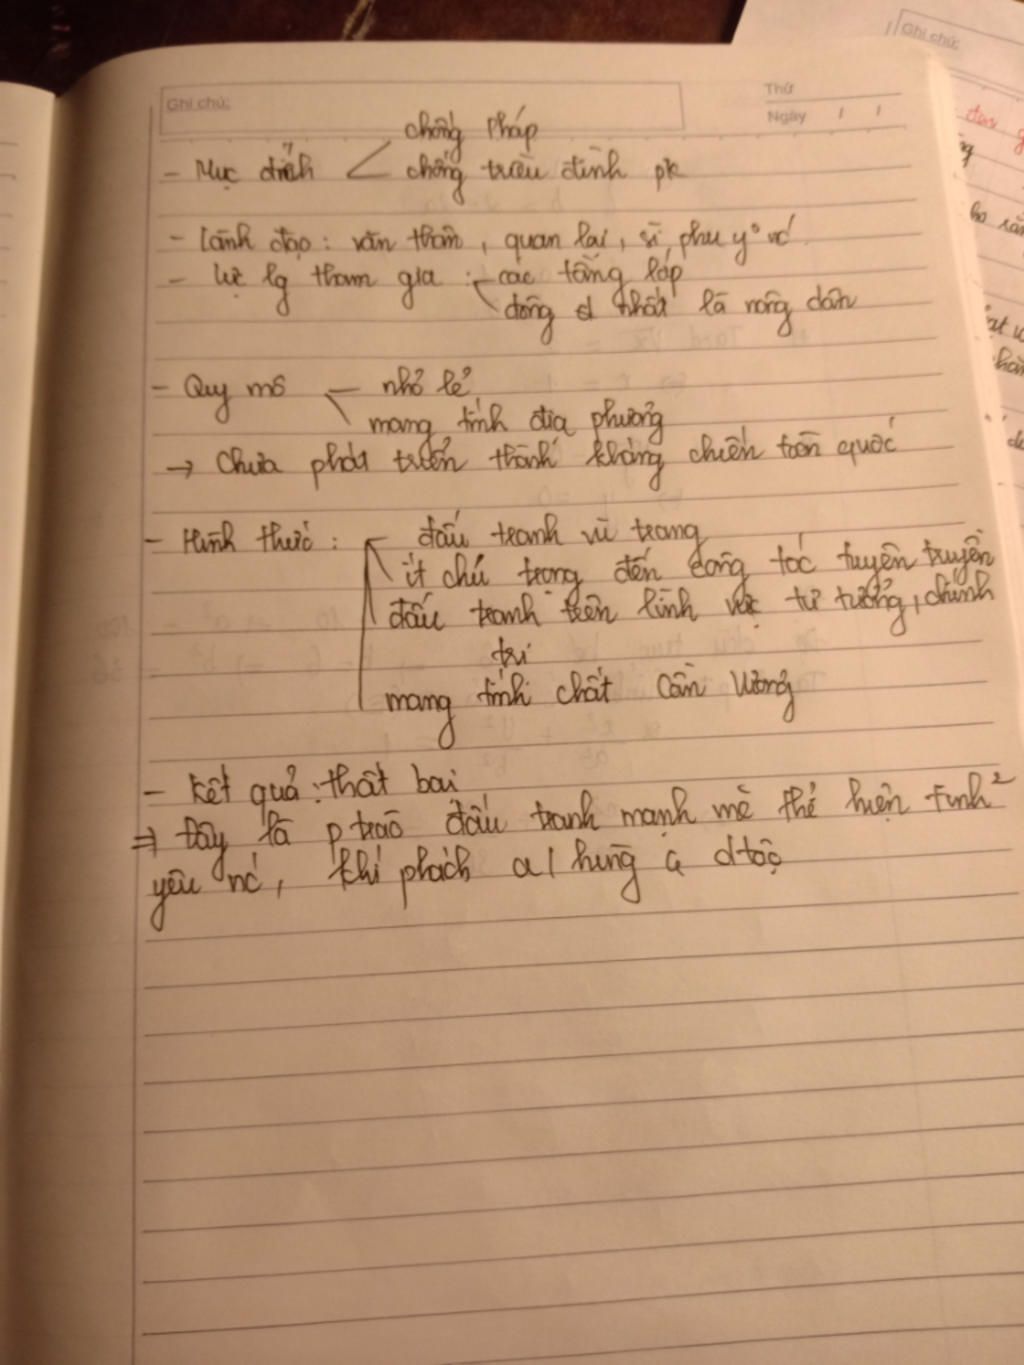 Ghi chú:
Thứ
Ngày / /
Ghi chú:
chống Pháp
- Mục đích
chống triều đình pk
- Lãnh đạo: văn thân, quan lại, sĩ phu y° nc
- Lực lg tham gia : các tầng lớp
đông nhất là nông dân
- Quy mô nhỏ lẻ
mang tính địa phương
→ Chưa phát triển thành kháng chiến toàn quốc
- Hình thức: đấu tranh vũ trang
ít chú trọng đến công tác tuyên truyền
đấu tranh trên lĩnh vực tư tưởng, chính
trị
mang tính chất Cần Vương
- Kết quả: thất bại
⇒ Đây là p trào đấu tranh mạnh mẽ thể hiện tinh²
yêu nc, khí phách a/hùng dtộc